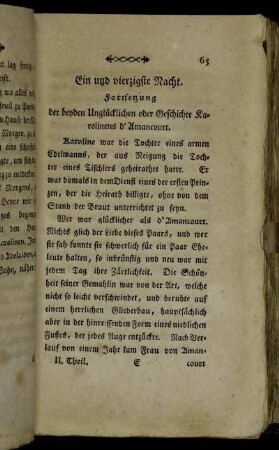 65
Ein und vierzigste Nacht.
Fortsetzung
der beyden Unglücklichen oder Geschichte Ka-
rolinens d'Amancourt.
Karoline war die Tochter eines armen
Edelmanns, der aus Neigung die Toch-
ter eines Tischlers geheirathet hatte. Er
war damals in dem Dienst eines der ersten Prin-
zen, der die Heirath billigte, ohne von dem
Stand der Braut unterrichtet zu seyn.
Wer war glücklicher als d'Amancourt.
Nichts glich der Liebe dieses Paars, und wer
sie sah konnte sie schwerlich für ein Paar Ehe-
leute halten, so inbrünstig und neu war mit
jedem Tag ihre Zärtlichkeit. Die Schön-
heit seiner Gemahlin war von der Art, welche
nicht so leicht verschwindet, und beruhte auf
einem herrlichen Gliederbau, hauptsächlich
aber in der hinreissenden Form eines niedlichen
Fußes, der jedes Auge entzückte. Nach Ver-
lauf von einem Jahr kam Frau von Aman-
II. Theil. E court